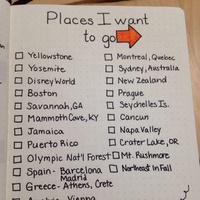 Places I want
to go
Yellowstone
Yosemite
Disney World
Boston
Savannah, GA
Mammoth Cave, KY
Jamaica
Puerto Rico
Olympic Nat'l Forest
Spain - Barcelona
Madrid
Greece - Athens, Crete
Austria - Vienna
Montreal, Quebec
Sydney, Australia
New Zealand
Prague
Seychelles Is.
Cancun
Napa Valley
Crater Lake, OR
Mt. Rushmore
Northeast in Fall